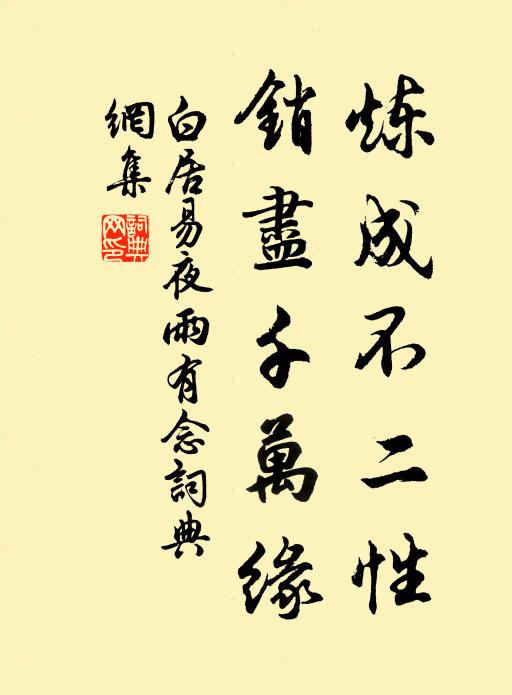 炼成不二性
銷盡千萬緣
白居易夜雨有念詞典
網集
詞典
网印